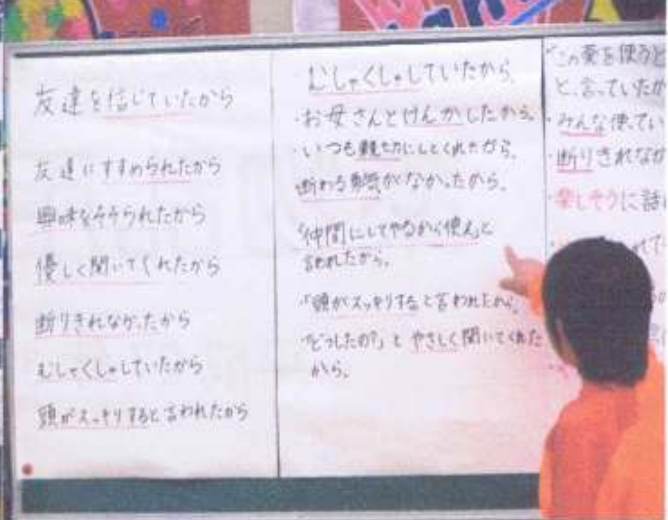 友達を信じていたから
友達にすすめられたから
興味をそそられたから
優しく聞いてくれたから
断りきれなかったから
むしゃくしゃしていたから
頭がスッキリすると言われたから
むしゃくしゃしていたから。
・お母さんとけんかしたから。
・いつも親切にしてくれたから。
断わる勇気がなかったから。
「仲間にしてやるから使え」と
言われたから。
・「頭がスッキリすると言われたから。
・「どうしたの?」と やさしく聞いてくれた
から。
「この薬を使うと
と、言っていたか
・みんな使ってい
・断りきれなか
・楽しそうに話